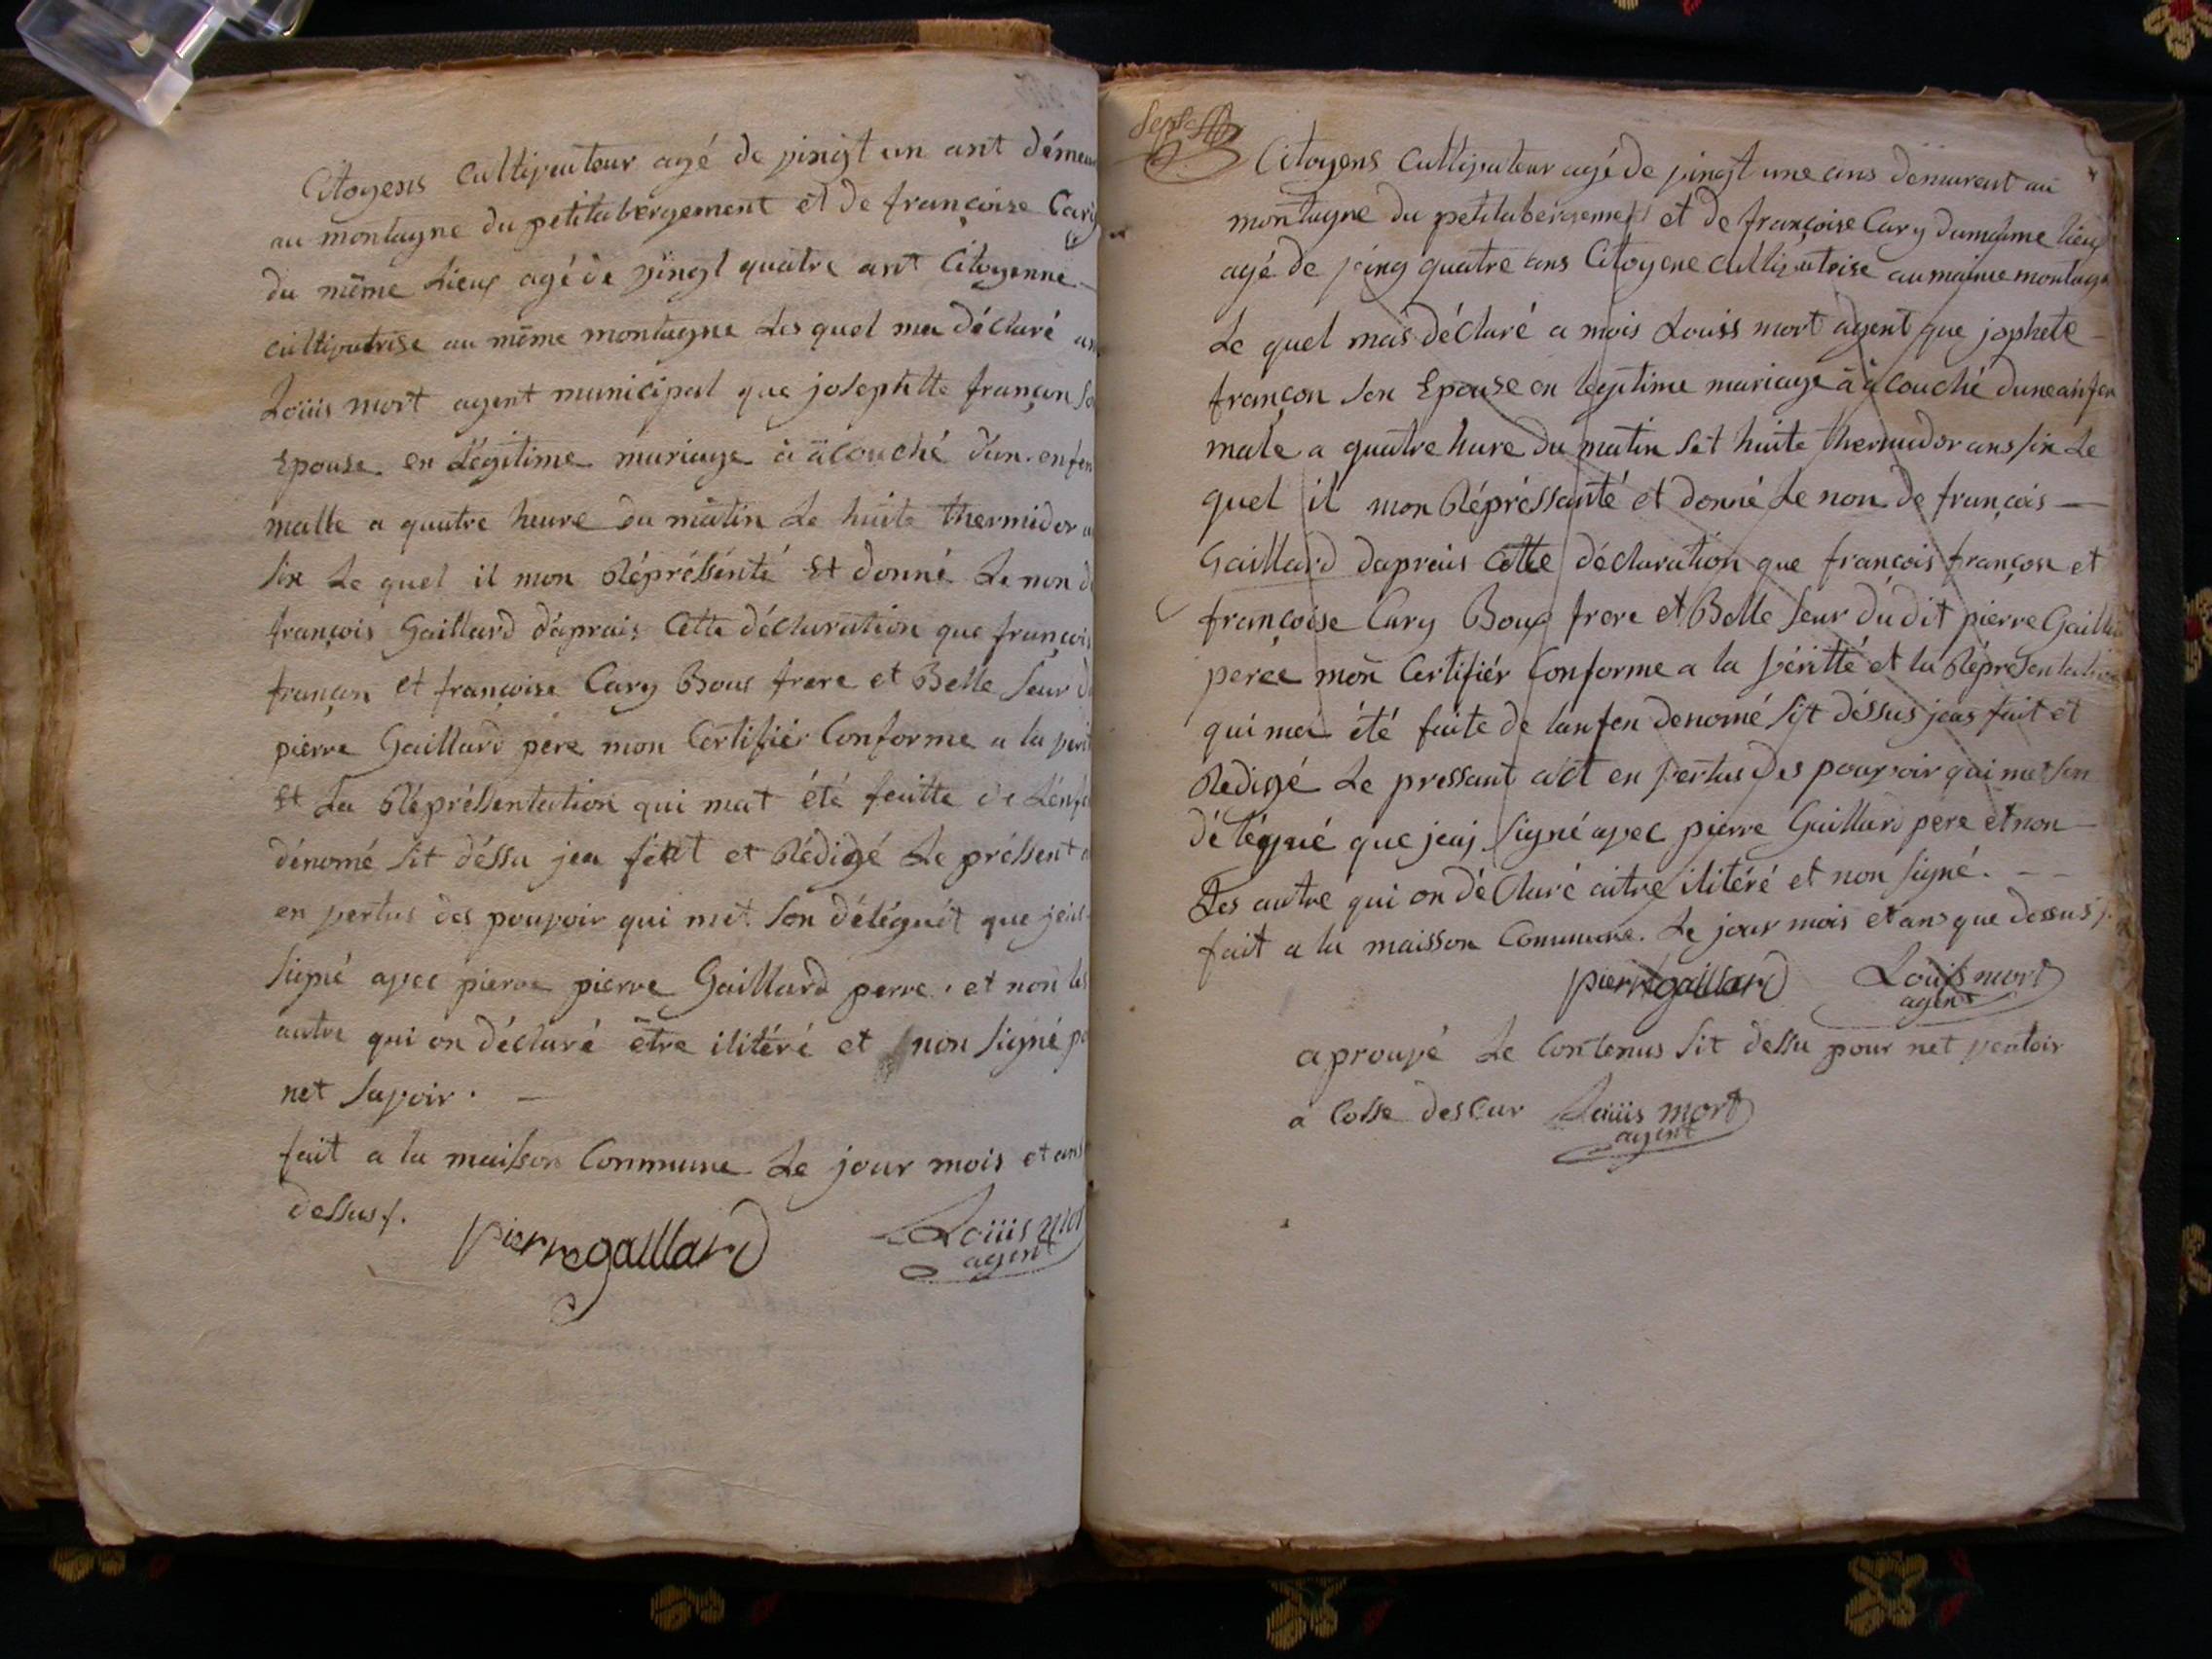 Citoyens Cultivateur agé de vingt un ant démeu
au montagne du petitabergement et de françoise Cary
du même Lieux agé de vingt quatre ant Citoyenne
cultivatrise au même montagne Les quel ma déclaré
Loüis mort agent municipal que josephtte françon
Epouse en Légitime mariage à äcouché d'un enfen
malle a quatre heure du mâtin Le huite thermidor
six Le quel il mon Répréssénté Et donné Le non
françois Gaillard d'aprais Cette déclaration que françois
françon et françoise Cary Bous frere et Belle seur
pierre Gaillard pére mon Certifiér Conforme a la verit
Et La Répréssentation qui mat été faitte de L'énfe
dénomé sit déssu jea fait et Rédigé Le préssent
en vertus des pouvoir qui met son déléguét que jeai
signé avec pierre pierre Gaillard perre. et non les
autre qui on déclaré être ilitéré et non signé po
net savoir. —
fait a la maison Commune Le jour mois et ans
dessus/.
pierre gaillard Loüis mor
agent
Sept
Citoyens Cultivateur agé de vingt une ans demurant au
montagne du petitabergement et de françoise Cary dumeme lieux
agé de ving quatre ans Citoyene cultivatrise au maime montagn
Le quel mais déclaré a mois Louiss mort agent que jophete
françon son Epouse en legitime mariage à àcouché dune anfen
male a quatre hure du matin sit huite thermidor ans six Le
quel il mon Répréssanté et donné Le non de françois —
Gaillard daprais Cette déclaration que françois françon et
françoise Cary Boux frere et Belle seur du dit pierre Gaillar
perée mon Certifiér Conforme a la véritté et la Répresentation
qui ma été faite de lanfen denomé sit déssus jeas fait et
Redigé Le pressant act en vertus des pouvoir qui met son
délégué que jeaj signé avec pierre Gaillard pere et non —
Les autre qui on déclaré aitre ilitéré et non signé. — —
fait a la maisson Commune. Le jour mois et ans que dessus/.
pierre gaillard Louis mort
agent
aprouvé Le Contenus sit dessu pour net
a Cosse desCur Loüis mort
agent